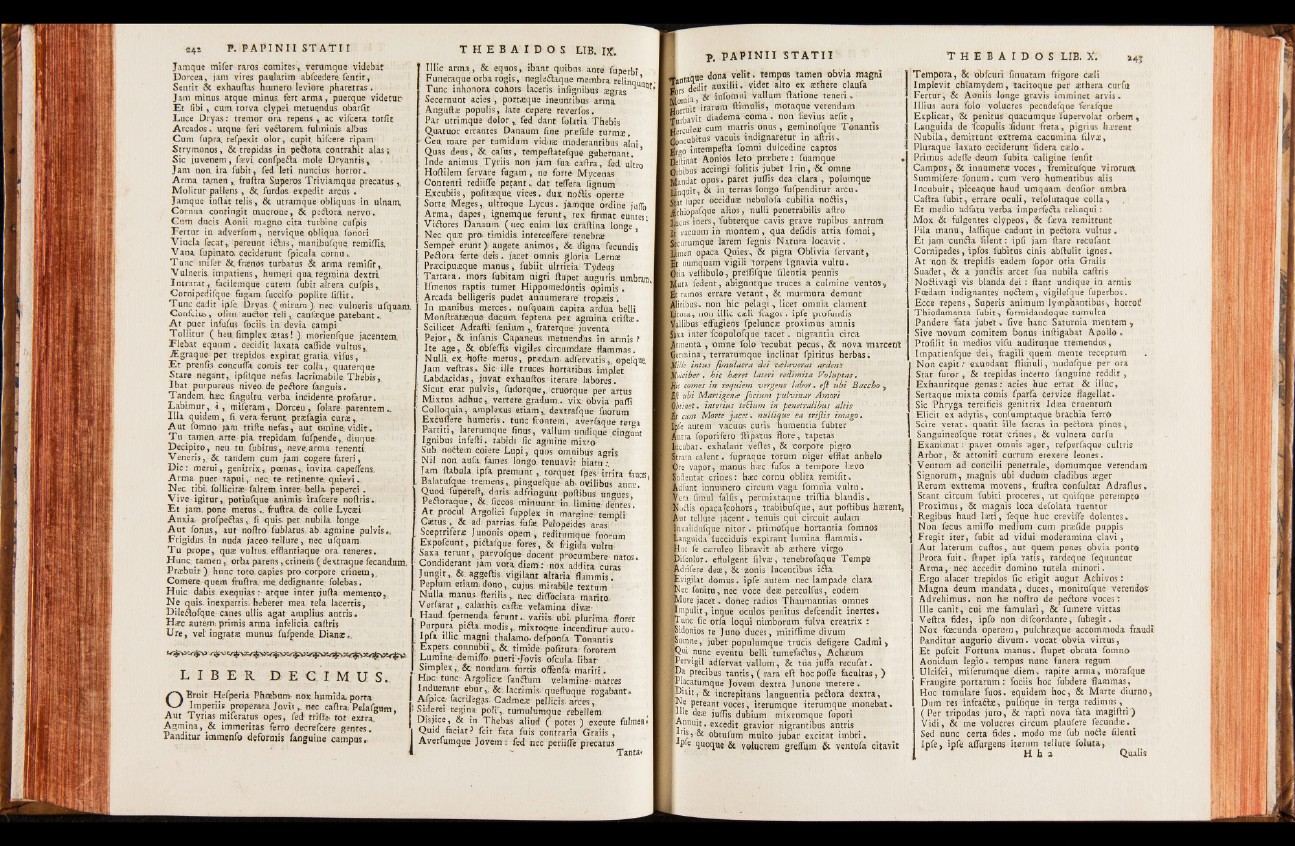 242 P. PAPINII STATII
Jamque miser raros comites, verumque videbat
Dorcea, jam vires paulatim abscedere sentit,
Sentit & exhaustas humero leviore pharetras.
Jam minus atque minus fert arma, puerque videtur
Et sibi, cum torva clypei metuendus obarsit
Luce Dryas: tremor ora repens, ac viscera torsit
Arcados. utque feri vectorem fulminis albus
Cum supra respexit olor, cupit hiscere ripam
Strymonos, & trepidas in pectora contrahit alas;
Sic juvenem, sævi conspecta mole Dryantis,
Jam non ira subit, sed leti nuncius horror.
Arma tamen, frustra Superos Triviamque precatus,
Molitur pallens, & surdos expedit arcus.
Jamque instat telis, & utramque obliquus in ulnam
Cornua contingit mucrone, & pectora nervo.
Cum ducis Aonii magno cita turbine cuspis
Fertur in adversum, nervique obliqua sonori
Vincla secat, pereunt ictus, manibusque remissis
Vana supinato ceciderunt spicula cornu.
Tunc miser & frænos turbatus & arma remisit,
Vulneris impatiens, humeri qua tegmina dextri
Intrarat, facilemque cutem subit altera cuspis,
Cornipedisque fugam succiso poplite sistit.
Tunc cadit ipse Dryas (mirum) nec vulneris usquam
Conscius, olim auctor teli, causæque patebant.
At puer infusus sociis in devia campi
Tollitur (heu simplex ætas!) moriensque jacentem
Flebat equum. cecidit laxata casside vultus,
Ægraque per trepidos expirat gratia visus,
Et prensis concussa comis ter colla, quaterque
Stare negant, ipsisque nefas lacrimabile Thebis,
Ibat purpureus niveo de pectore sanguis.
Tandem hæc singultu verba incidente profatur.
Labimur, i, miseram, Dorceu, solare parentem.
Illa quidem, si vera ferunt præsagia curæ,
Aut somno jam triste nefas, aut omine vidit.
Tu tamen arte pia trepidam suspende, diuque
Decipito, neu tu subitus, neve arma tenenti
Veneris, & tandem cum jam cogere fateri,
Dic: merui, genitrix, pœnas, invita capessens
Arma puer rapui, nec te retinente quievi.
Nec tibi sollicitæ saltem inter bella peperci.
Vive igitur, potiusque animis irascere nostris.
Et jam pone metus. frustra de colle Lycæi
Anxia prospectas, si quis per nubila longe
Aut sonus, aut nostro sublatus ab agmine pulvis.
Frigidus in nuda jaceo tellure, nec usquam
Tu prope, quæ vultus efflantiaque ora teneres.
Hunc tamen, orba parens, crinem (dextraque secandum
Præbuit) hunc toto capies pro corpore crinem,
Comere quem frustra me dedignante solebas.
Huic dabis exequias: atque inter justa memento,
Ne quis inexpertis hebetet mea tela lacertis,
Dilectosque canes ullis agat amplius antris.
Hæc autem primis arma infelicia castris
Ure, vel ingratæ munus suspende Dianæ.
LIBER DECIMUS.
OBruit Hesperia Phœbum nox humida porta
Imperiis properata Jovis, nec castra Pelasgum,
Aut Tyrias miseratus opes, sed triste tot extra
Agmina, & immeritas ferro decrescere gentes.
Panditur immenso deformis sanguine campus.
THEBAIDOS LIB. IX.
Illic arma, & equos, ibant quibus ante superbi,
Funeraque orba rogis, neglectaque membra relinquunt.
Tunc inhonora cohors laceris insignibus ægras
Secernunt acies, portæque ineuntibus arma
Angustæ populis, late cepere reversos.
Par utrimque dolor, sed dant solatia Thebis
Quatuor errantes Danaum sine præside turmæ.
Ceu mare per tumidum viduæ moderantibus alni,
Quas deus, & casus, tempestatesque gubernant.
Inde animus Tyriis non jam sua castra, sed ultro
Hostilem servare fugam, ne forte Mycenas
Contenti rediisse petant. dat tessera signum
Excubiis, positæque vices. dux noctis opertæ
Sorte Meges, ultroque Lycus. jamque ordine jusso
Arma, dapes, ignemque ferunt, rex firmat euntes:
Victores Danaum (nec enim lux crastina longe,
Nec quæ pro timidis intercessere tenebræ
Semper erunt) augete animos, & digna secundis
Pectora ferte deis. jacet omnis gloria Lernæ
Præcipuæque manus, subiit ultricia Tydeus
Tartara. mors subitam nigri stupet auguris umbram.
Ismenos raptis tumet Hippomedontis opimis.
Arcada belligeris pudet annumerare tropæis.
In manibus merces. nusquam capita ardua belli
Monstratæque ducum septena per agmina cristæ.
Scilicet Adrasti senium, fraterque juventa
Pejor, & insanis Capaneus metuendus in armis?
Ite age, & obsessis vigiles circumdate flammas.
Nulli ex hoste metus, prædam adservatis, opesque
Jam vestras. Sic ille truces hortatibus implet
Labdacidas, juvat exhaustos iterare labores.
Sicut erat pulvis, sudorque, cruorque per artus
Mixtus adhuc, vertere gradum. vix obvia passi
Colloquia, amplexus etiam, dextrasque suorum
Excussere humeris. tunc frontem, aversaque terga
Partiti, laterumque sinus, vallum undique cingunt
Ignibus infesti. rabidi sic agmine mixto
Sub noctem coiere Lupi, quos omnibus agris
Nil non ausa fames longo tenuavit hiatu:
Jam stabula ipsa premunt, torquet spes irrita fauces,
Balatusque tremens, pinguesque ab ovilibus auræ,
Quod superest, duris adfringunt postibus ungues,
Pectoraque, & siccos minuunt in limine dentes.
At procul Argolici supplex in margine templi
Cœtus, & ad patrias fusæ Pelopeides aras
Sceptriferæ Junonis opem, reditumque suorum
Exposcunt, pictasque fores, & frigida vultu
Saxa terunt, parvosque docent procumbere natos.
Condiderant jam vota diem: nox addita curas
Jungit, & aggestis vigilant altaria flammis.
Peplum etiam dono, cujus mirabile textum
Nulla manus sterilis, nec dissociata marito
Versarat, calathis castæ velamina divæ
Haud spernenda ferunt. variis ubi plurima floret
Purpura picta modis, mixtoque incenditur auro.
Ipsa illic magni thalamo desponsa Tonantis
Expers connubii, & timide positura sororem
Lumine demisso pueri Jovis oscula libat
Simplex, & nondum furtis offensa mariti.
Hoc tunc Argolicæ sanctum velamine matres
Induerant ebur, & lacrimis questuque rogabant.
Aspice sacrilegas Cadmeæ pellicis arces,
Siderei regina poli, tumulumque rebellem
Disjice, & in Thebas aliud (potes) excute fulmen:
Quid faciat? scit fata suis contraria Graiis,
Aversumque Jovem: sed nec periisse precatus
Tanta-
P. PAPINII STATII
Tantaque dona velit. tempus tamen obvia magni
Fors dedit auxilii. videt alto ex æthere clausa
Mœnia, & insomni vallum statione teneri.
Horruit irarum stimulis, motaque verendum
Turbavit diadema coma. non sævius arsit,
Herculeæ cum matris onus, geminosque Tonantis
Concubitus vacuis indignaretur in astris.
Ergo intempesta somni dulcedine captos
Destinat Aonios leto præbere: suamque
Orbibus accingi solitis jubet Irin, & omne
Mandat opus. paret jussis dea clara, polumque
Linquit, & in terras longo suspenditur arcu.
Stat super occiduæ nebulosa cubilia noctis,
Æthiopasque alios, nulli penetrabilis astro
Lucus iners, subterque cavis grave rupibus antrum
It vacuum in montem, qua desidis atria somni,
Securumque larem segnis Natura locavit.
Limen opaca Quies, & pigra Oblivia servant,
Et nunquam vigili torpens Ignavia vultu.
Otia vestibulo, pressisque silentia pennis
Muta sedent, abiguntque truces a culmine ventos,
Et ramos errare vetant, & murmura demunt
Alitibus. non hic pelagi, licet omnia clament
Litora, non ille cæli fragor. ipse profundis
Vallibus effugiens speluncæ proximus amnis
Saxa inter scopulosque tacet. nigrantia circa
Armenta, omne solo recubat pecus, & nova marcent
Germina, terrarumque inclinat spiritus herbas.
Mille intus simulacra dei cælaverat ardens
Mulciber. hic hæret lateri redimita Voluptas.
Est comes in requiem vergens labor. est ubi Baccho,
Est ubi Martigenæ socium pulvinar Amori
Obtinet. interius tectum in penetralibus altis
Et cum Morte jacet. nullique ea tristis imago.
Ipse autem vacuus curis humentia subter
Antra soporifero stipatus flore, tapetas
Incubat. exhalant vestes, & corpore pigro
Strata calent. supraque torum niger efflat anhelo
Ore vapor, manus hæc fusos a tempore lævo
Sustentat crines: hæc cornu oblita remisit.
Adsunt innumero circum vaga somnia vultu.
Vera simul falsis, permixtaque tristia blandis.
Noctis opaca cohors, trabibusque, aut postibus hærent,
Aut tellure jacent. tenuis qui circuit aulam
Invalidusque nitor. primosque hortantia somnos
Languida succiduis expirant lumina flammis.
Huc se cæruleo libravit ab æthere virgo
Discolor. effulgent silvæ, tenebrosaque Tempe
Adrisere deæ, & zonis lucentibus icta
Evigilat domus. ipse autem nec lampade clara
Nec sonitu, nec voce deæ perculsus, eodem
More jacet. donec radios Thaumantias omnes
Impulit, inque oculos penitus descendit inertes.
Tunc sic orsa loqui nimborum fulva creatrix:
Sidonios te Juno duces, mitissime divum
Somne, jubet populumque trucis defigere Cadmi,
Qui nunc eventu belli tumefactus, Achæum
Pervigil adservat vallum, & tua jussa recusat.
Da precibus tantis, (rara est hoc posse facultas,)
Placatumque Jovem dextra Junone merere.
Dixit, & increpitans languentia pectora dextra,
Ne pereant voces, iterumque iterumque monebat.
Ille deæ jussis dubium mixtumque sopori
Annuit. excedit gravior nigrantibus antris
Iris, & obtusum multo jubar excitat imbri.
Ipse quoque & volucrem gressum & ventosa citavit
THEBAIDOS LIB. X. 243
Tempora, & obscuri sinuatam frigore cæli
Implevit chlamydem, tacitoque per æthera cursu
Fertur, & Aoniis longe gravis imminet arvis.
Illius aura solo volucres pecudesque ferasque
Explicat, & penitus quacumque supervolat orbem,
Languida de scopulis sidunt freta, pigrius hærent
Nubila, demittunt extrema cacumina silvæ,
Pluraque laxato ceciderunt sidera cælo.
Primus adesse deum subita caligine sensit
Campus, & innumeræ voces, fremitusque virorum
Summisere sonum. cum vero humentibus alis
Incubuit, piceaque haud umquam densior umbra
Castra subit, errare oculi, resolutaque colla,
Et medio adfatu verba imperfecta relinqui:
Mox & fulgentes clypeos, & sæva remittunt
Pila manu, lassique cadunt in pectora vultus.
Et jam cuncta silent: ipsi jam stare recusant
Cornipedes, ipsos subitus cinis abstulit ignes.
At non & trepidis eadem sopor otia Graiis
Suadet, & a junctis arcet sua nubila castris
Noctivagi vis blanda dei: stant undique in armis
Fœdam indignantes noctem, vigilesque superbos.
Ecce repens, Superis animum lymphantibus, horror
Thiodamanta subit, formidandoque tumultu
Pandere fata jubet. sive hanc Saturnia mentem,
Sive novum comitem bonus instigabat Apollo.
Prosilit in medios visu audituque tremendus,
Impatiensque dei, fragili quem mente receptum
Non capit: exundant stimuli, nudusque per ora
Stat furor, & trepidas incerto sanguine reddit,
Exhauritque genas: acies huc errat & illuc,
Sertaque mixta comis sparsa cervice flagellat.
Sic Phryga terrificis genitrix Idæa cruentum
Elicit ex adytis, consumptaque brachia ferro
Scire vetat. quatit ille sacras in pectora pinus,
Sanguineosque rotat crines, & vulnera cursu
Exanimat: pavet omnis ager, respersaque cultris
Arbor, & attoniti currum erexere leones.
Ventum ad concilii penetrale, domumque verendam
Signorum, magnis ubi dudum cladibus æger
Rerum extrema movens, frustra consultat Adrastus.
Stant circum subiti proceres, ut quisque perempto
Proximus, & magnis loca desolata tuentur
Regibus haud læti, seque huc crevisse dolentes.
Non secus amisso medium cum præside puppis
Fregit iter, subit ad vidui moderamina clavi,
Aut laterum custos, aut quem penes obvia ponto
Prora fuit. stupet ipsa ratis, tardeque sequuntur
Arma, nec accedit domino tutela minori.
Ergo alacer trepidos sic erigit augur Achivos:
Magna deum mandata, duces, monitusque verendos
Advehimus. non hæ nostro de pectore voces:
Ille canit, cui me famulari, & sumere vittas
Vestra fides, ipso non discordante, subegit.
Nox fœcunda operum, pulchræque accommoda fraudi
Panditur augurio divum. vocat obvia virtus,
Et poscit Fortuna manus. stupet obruta somno
Aonidum legio. tempus nunc funera regum
Ulcisci, miserumque diem. rapite arma, morasque
Frangite portarum: sociis hoc subdere flammas,
Hoc tumulare suos. equidem hoc, & Marte diurno,
Dum res infractæ, pulsique in terga redimus,
(Per tripodas juro, & rapti nova fata magistri)
Vidi, & me volucres circum plausere secundæ.
Sed nunc certa fides. modo me sub nocte silenti
Ipse, ipse assurgens iterum tellure soluta,
H h 2 Qualis